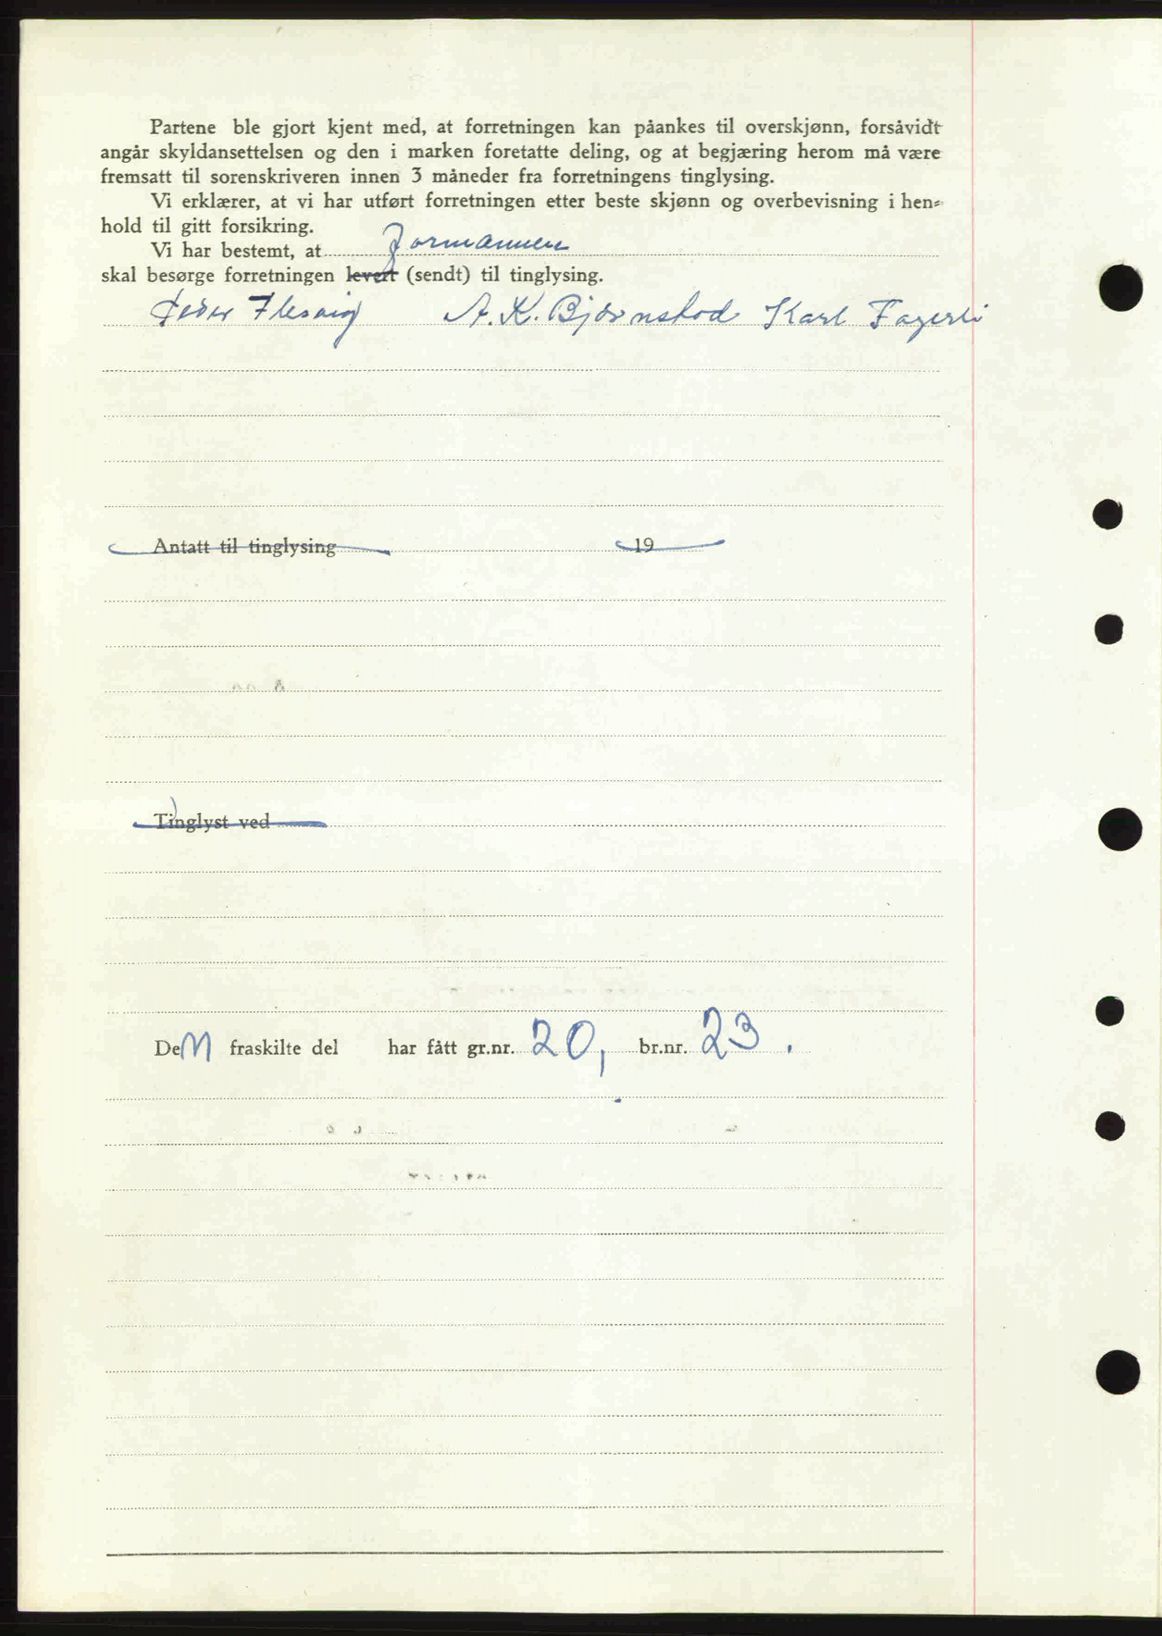 Partene ble gjort kjent med, at forretningen kan påankes til overskjønn, forsåvidt
angår skyldansettelsen og den i marken foretatte deling, og at begjæring herom må være
fremsatt til sorenskriveren innen 3 måneder fra forretningens tinglysing.
Vi erklærer, at vi har utført forretningen etter beste skjønn og overbevisning i hen-
hold til gitt forsikring.
Vi har bestemt, at formannen
skal besørge forretningen levert (sendt) til tinglysing.
Peder A. K. Bjørnstad Karl Fagerli
Antatt til tinglysing 19
Tinglyst ved
Den fraskilte del har fått gr.nr. 20, br.nr. 23.